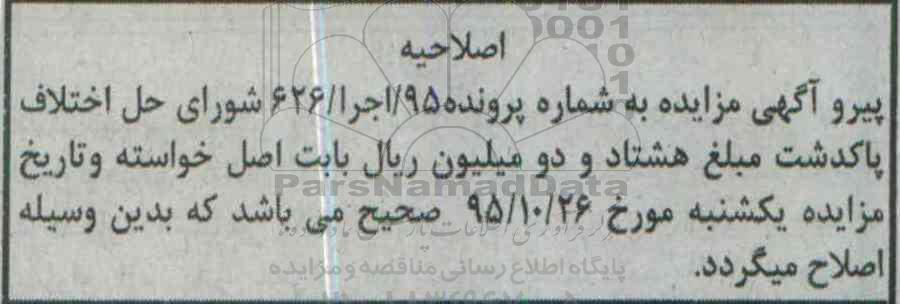 اصلاحیه
پیرو آگهی مزایده به شماره پرونده۹۵/اجرا/۶۲۶ شورای حل اختلاف
پاکدشت مبلغ هشتاد و دو میلیون ریال بابت اصل خواسته وتاریخ
ParsNamadData
مزایده یکشنبه مورخ ۹۵/۱۰/۲۶ صحیح می باشد که بدین وسیله
اصلاح میگردد.
پایگاه اطلاع رسانی مناقصه و مزایده